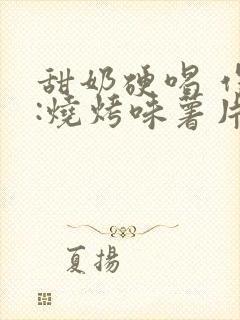 甜奶硬唱
:燒烤味薯片
夏揚